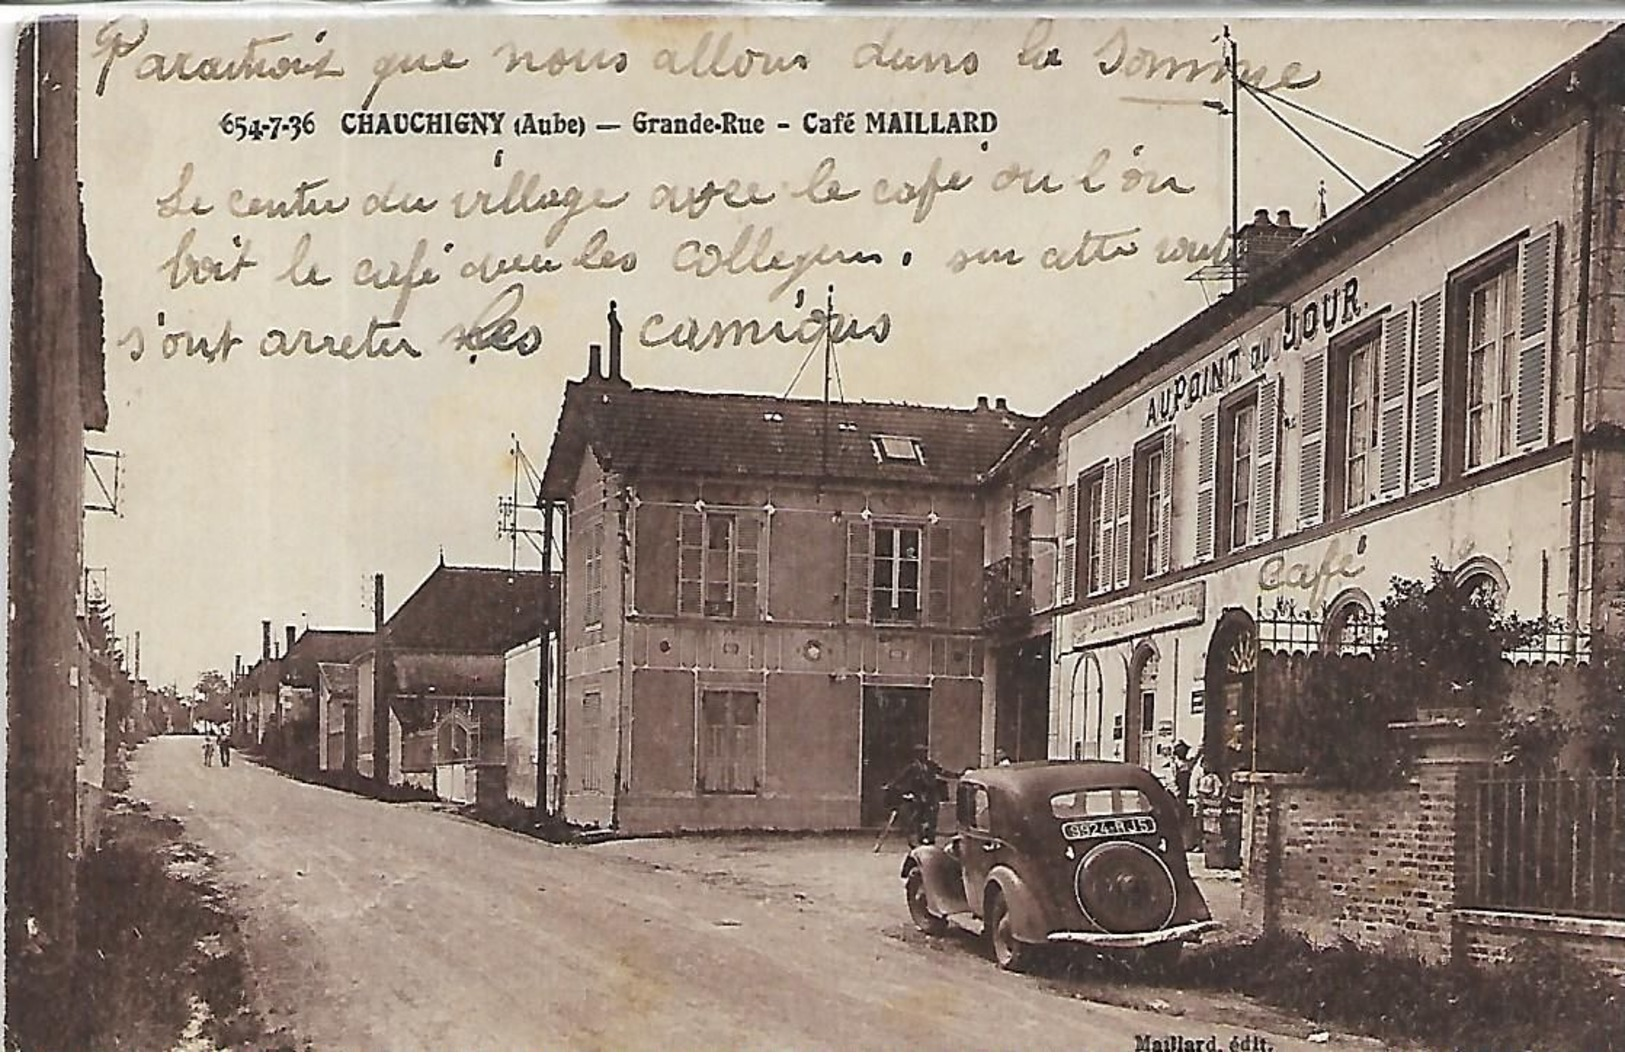 Paraitrois que nous allons dans la Somme
654-7-36 CHAUCHIGNY (Aube) — Grande-Rue - Café MAILLARD
Le centre du village avec le café ou l'on
boit le café avec les collegues. sur cette route
s'ont arreter les camions
AU POINT DU JOUR.
café
9924-RJ5
Maillard, édit.